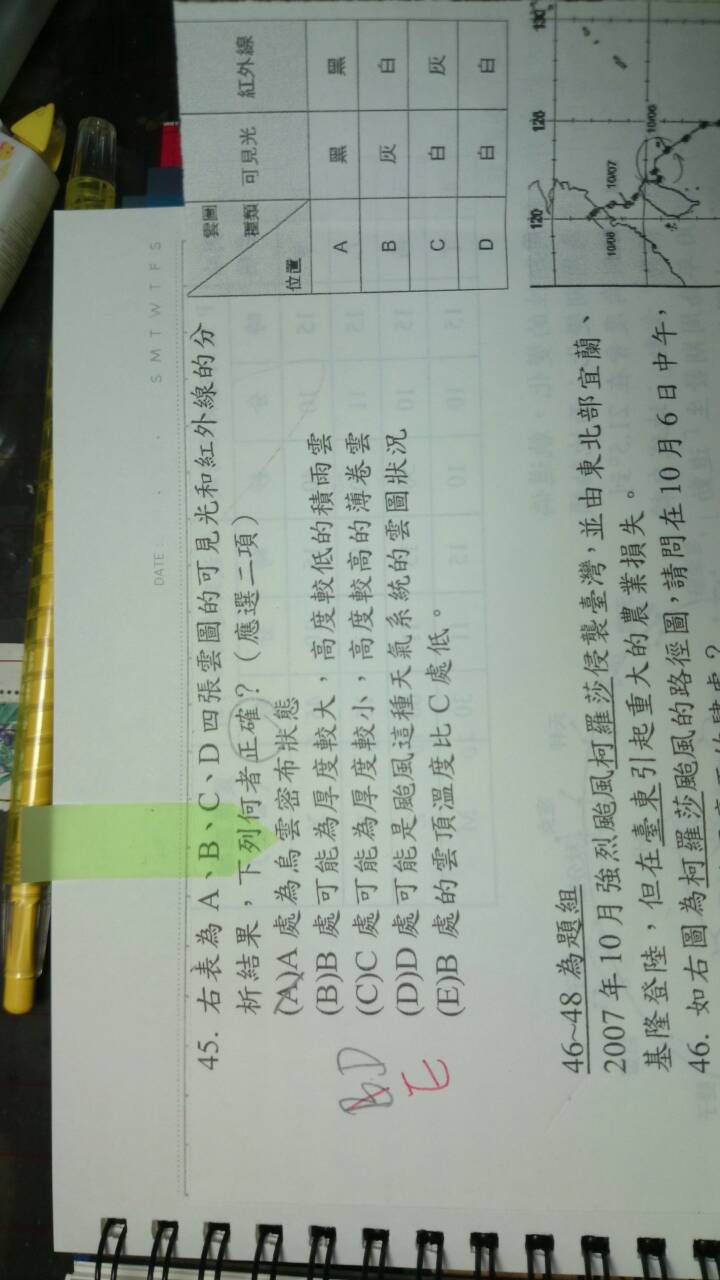 S M T W T F S
DATE
雲圖
種類 可見光 紅外線
位置
A 黑 黑
B 灰 白
C 白 灰
D 白 白
45. 右表為 A、B、C、D 四張雲圖的可見光和紅外線的分
析結果，下列何者正確？（應選二項）
(A)A 處為烏雲密布狀態
(B)B 處可能為厚度較大，高度較低的積雨雲
(C)C 處可能為厚度較小，高度較高的薄卷雲
(D)D 處可能是颱風這種天氣系統的雲圖狀況
(E)B 處的雲頂溫度比 C 處低。
BD
E
46~48 為題組
2007 年 10 月強烈颱風柯羅莎侵襲臺灣，並由東北部宜蘭、
基隆登陸，但在臺東引起重大的農業損失。
46. 如右圖為柯羅莎颱風的路徑圖，請問在 10 月 6 日中午，
120 126 130
10/06
10/07
10/08